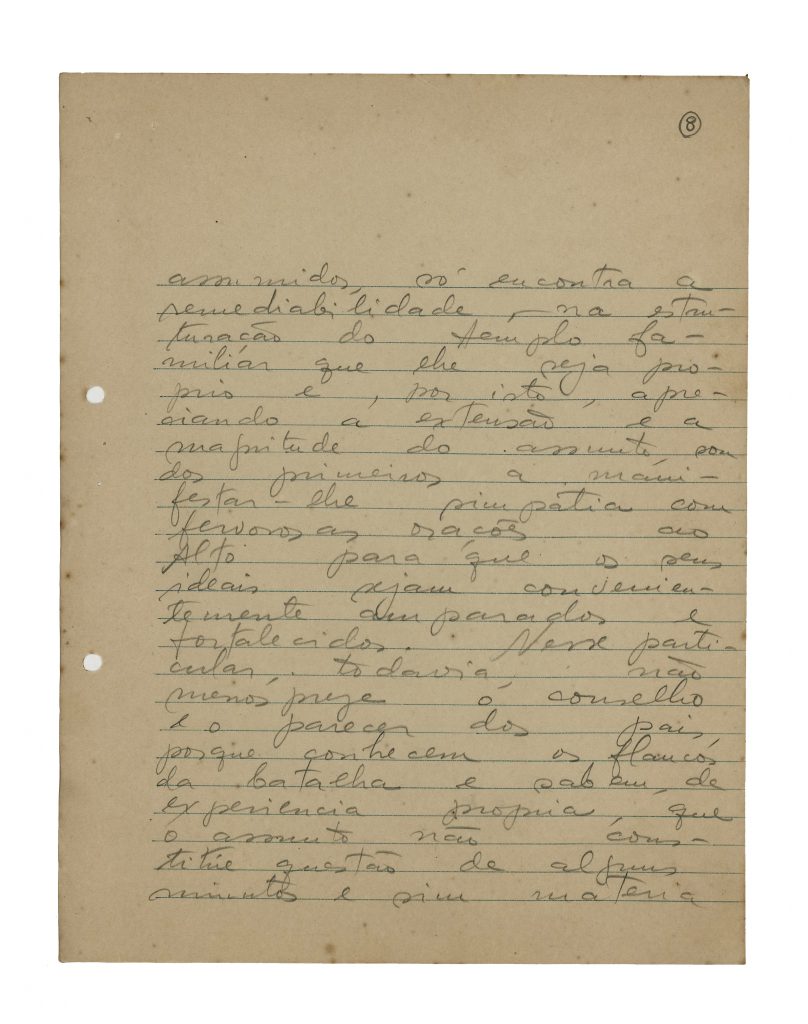 8
assumidos, só encontra a
remediabilidade, na estru-
turação do templo fa-
miliár que lhe seja pro-
prio e, por isto, apre-
ciando a extensão e a
magnitude do assunto, sou
dos primeiros a mani-
festar-lhe simpatia com
fervorosas orações ao
Alto para que os seus
ideais sejam convenien-
temente amparados e
fortalecidos. Nesse parti-
cular, todavia, não
menospreze o conselho
e o parecer dos pais,
porque conhecem os flancos
da batalha e sabem, de
experiencia propria, que
o assunto não cons-
titúe questão de alguns
minutos e sim materia